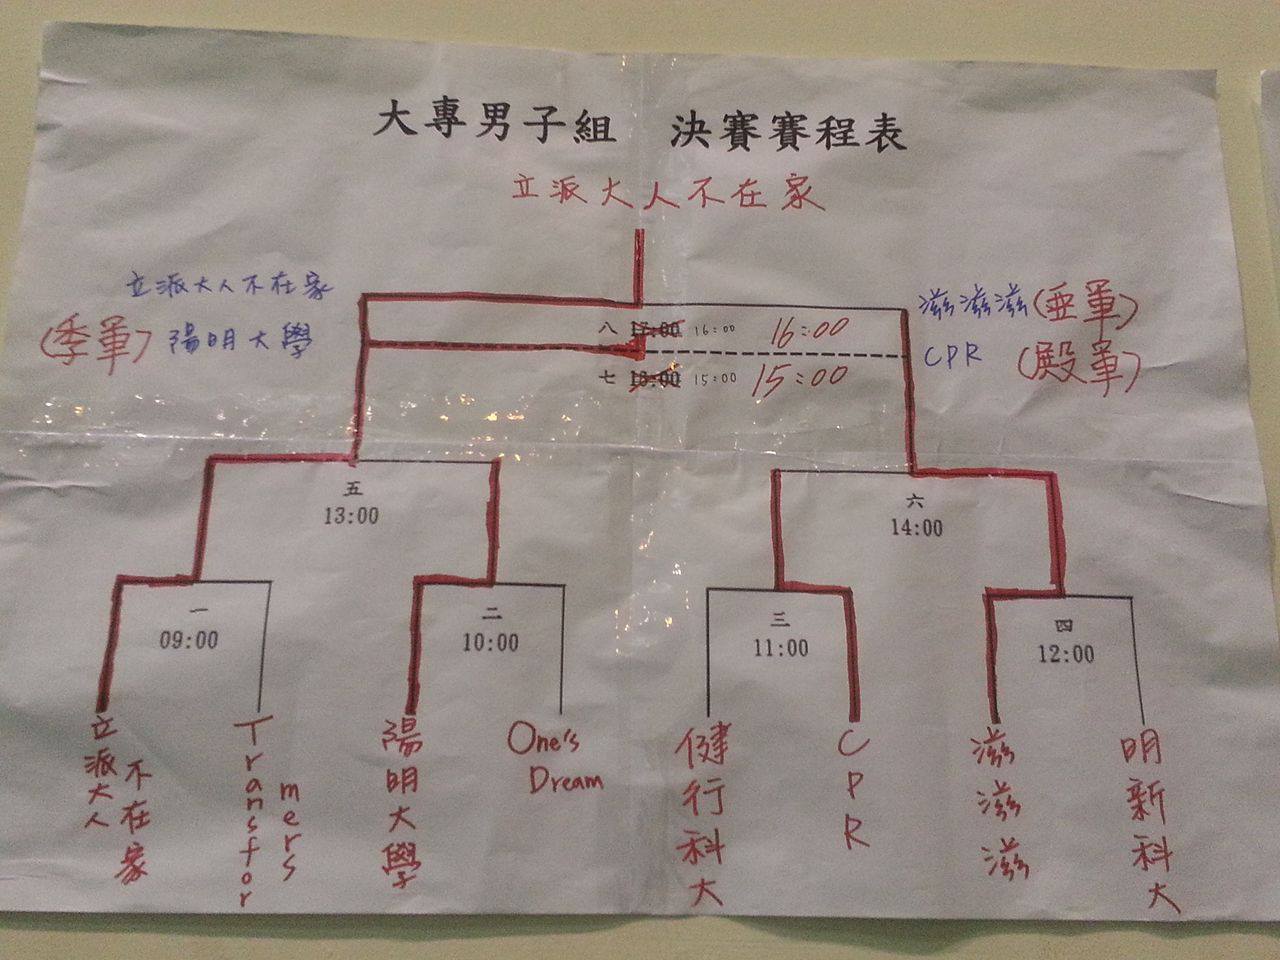 大專男子組 決賽賽程表
立派大人不在家
立派大人不在家
滋滋滋(亞軍)
八 17:00 16:00 16:00
(季軍) 陽明大學
CPR (殿軍)
七 16:00 15:00 15:00
五
13:00
六
14:00
一
09:00
二
10:00
三
11:00
四
12:00
立派大人不在家
Transformers
陽明大學
One's
Dream
健行科大
CPR
滋滋滋
明新科大